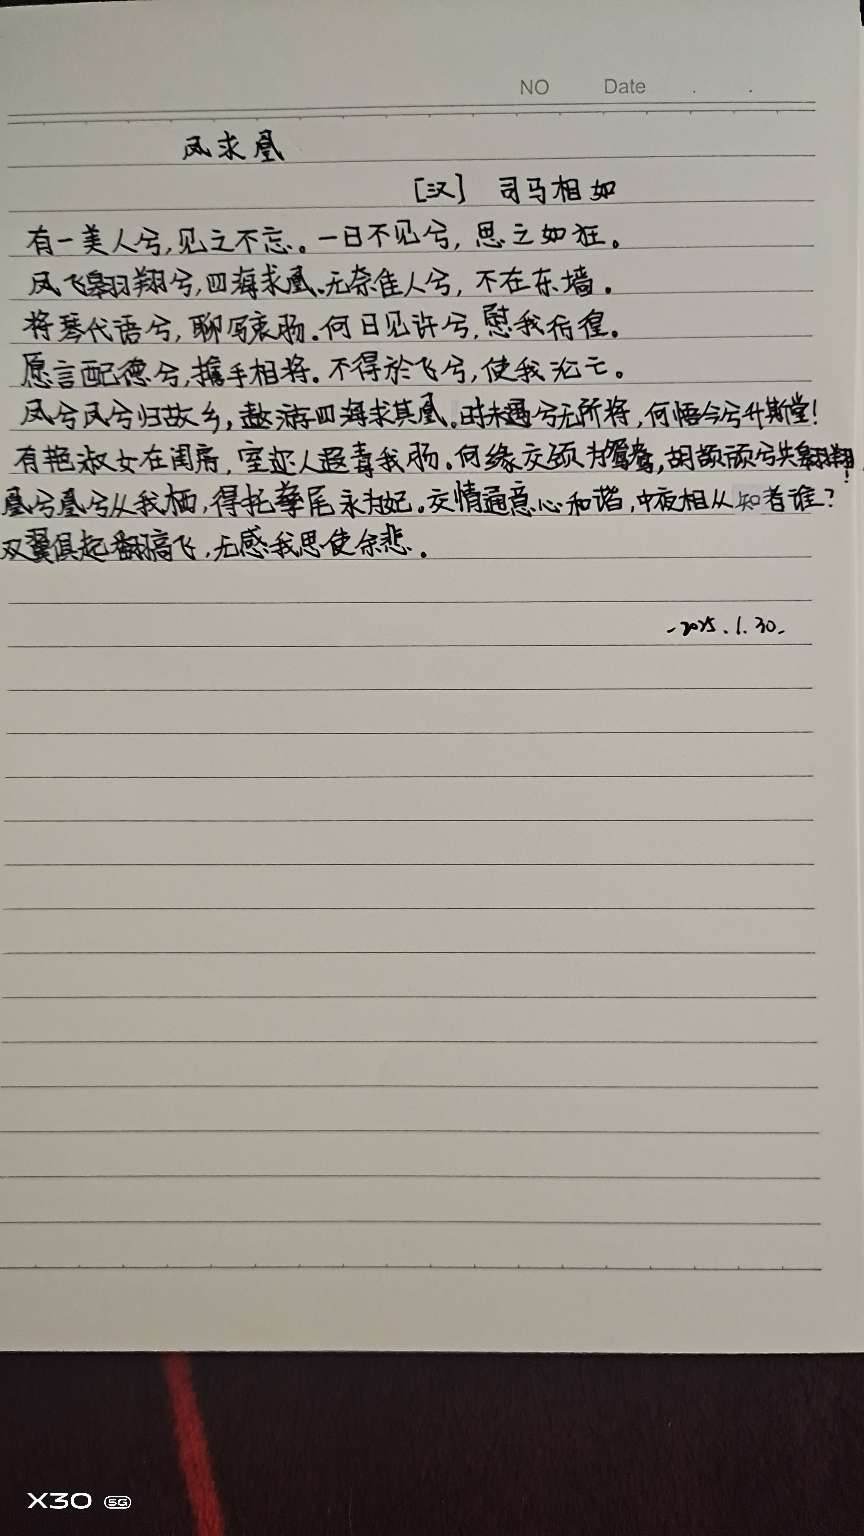 NO Date . .
凤求凰
[汉] 司马相如
有一美人兮,见之不忘。一日不见兮,思之如狂。
凤飞翱翔兮,四海求凰。无奈佳人兮,不在东墙。
将琴代语兮,聊写衷肠。何日见许兮,慰我彷徨。
愿言配德兮,携手相将。不得於飞兮,使我沦亡。
凤兮凤兮归故乡,遨游四海求其凰。时未遇兮无所将,何悟今兮升斯堂!
有艳淑女在闺房,室迩人遐毒我肠。何缘交颈为鸳鸯,胡颉颃兮共翱翔!
凰兮凰兮从我栖,得托孳尾永为妃。交情通意心和谐,中夜相从知者谁?
双翼俱起翻高飞,无感我思使余悲。
-2025.1.30.
X30 5G